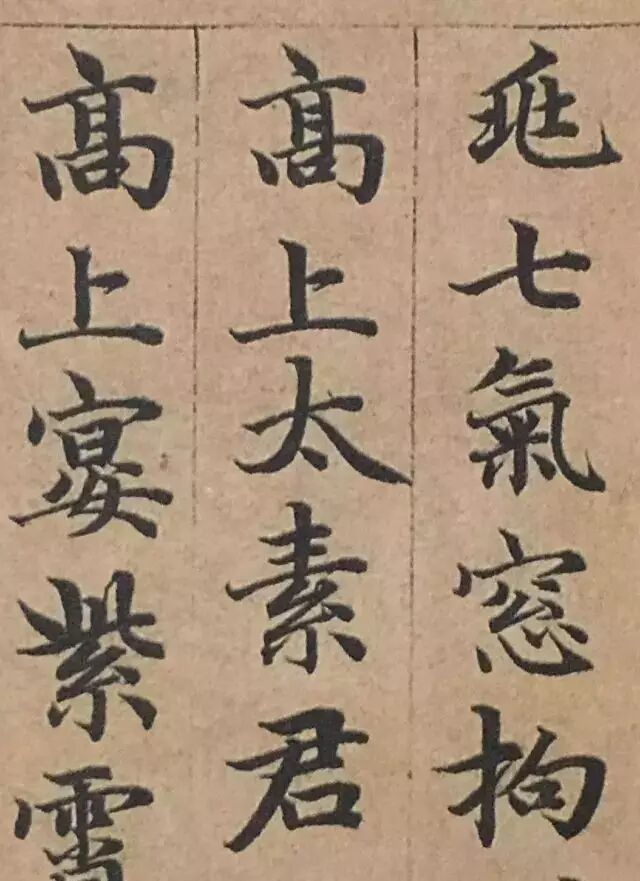 七氣窓拘
高上太素君
高上宴紫霄